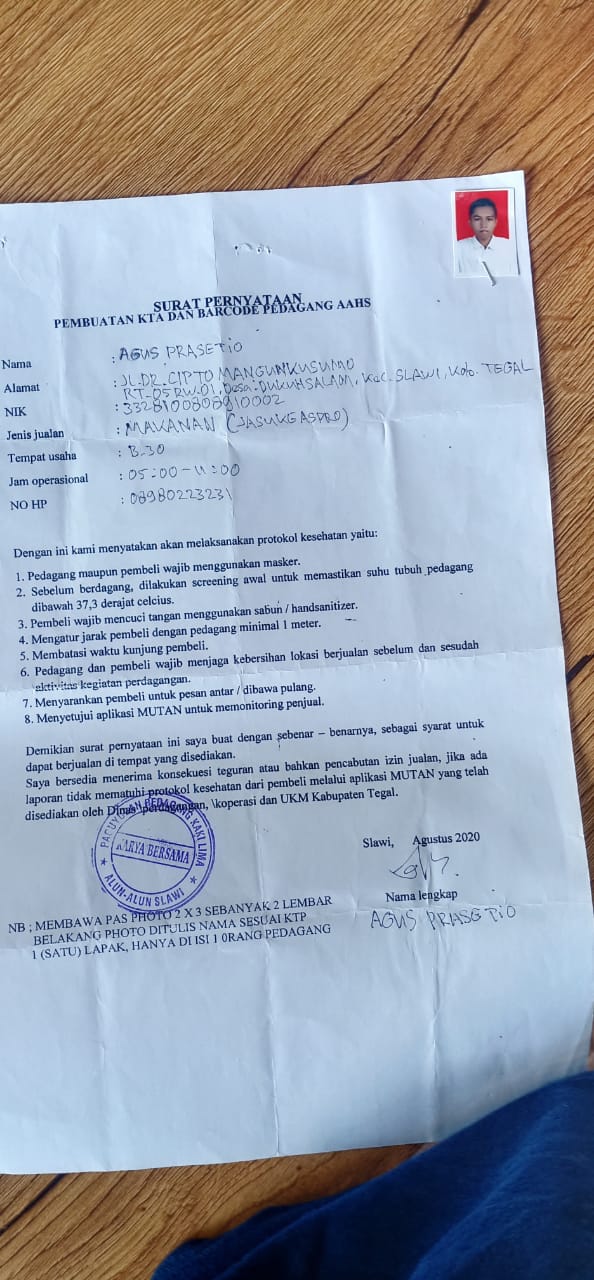 SURAT PERNYATAAN
PEMBUATAN KTA DAN BARCODE PEDAGANG AAHS
Nama : AGUS PRASETIO
Alamat : JL.DR.CIPTO MANGUNKUSUMO
RT-05 RW.01, Desa.DUKUHSALAM, Kec.SLAWI, Kab. TEGAL
NIK : 3328100808910002
Jenis jualan : MAKANAN (JASUKE ASPRO)
Tempat usaha : B-30
Jam operasional : 05:00-11:00
NO HP : 08980223231
Dengan ini kami menyatakan akan melaksanakan protokol kesehatan yaitu:
1. Pedagang maupun pembeli wajib menggunakan masker.
2. Sebelum berdagang, dilakukan screening awal untuk memastikan suhu tubuh pedagang
dibawah 37,3 derajat celcius.
3. Pembeli wajib mencuci tangan menggunakan sabun / handsanitizer.
4. Mengatur jarak pembeli dengan pedagang minimal 1 meter.
5. Membatasi waktu kunjung pembeli.
6. Pedagang dan pembeli wajib menjaga kebersihan lokasi berjualan sebelum dan sesudah
aktivitas kegiatan perdagangan.
7. Menyarankan pembeli untuk pesan antar / dibawa pulang.
8. Menyetujui aplikasi MUTAN untuk memonitoring penjual.
Demikian surat pernyataan ini saya buat dengan sebenar – benarnya, sebagai syarat untuk
dapat berjualan di tempat yang disediakan.
Saya bersedia menerima konsekuesi teguran atau bahkan pencabutan izin jualan, jika ada
laporan tidak mematuhi protokol kesehatan dari pembeli melalui aplikasi MUTAN yang telah
disediakan oleh Dinas \perdagangan, \koperasi dan UKM Kabupaten Tegal.
PAGUYUBAN PEDAGANG KAKI LIMA
KARYA BERSAMA
ALUN-ALUN SLAWI
Slawi, Agustus 2020
Nama lengkap
AGUS PRASETIO
NB ; MEMBAWA PAS PHOTO 2 X 3 SEBANYAK 2 LEMBAR
BELAKANG PHOTO DITULIS NAMA SESUAI KTP
1 (SATU) LAPAK, HANYA DI ISI 1 0RANG PEDAGANG